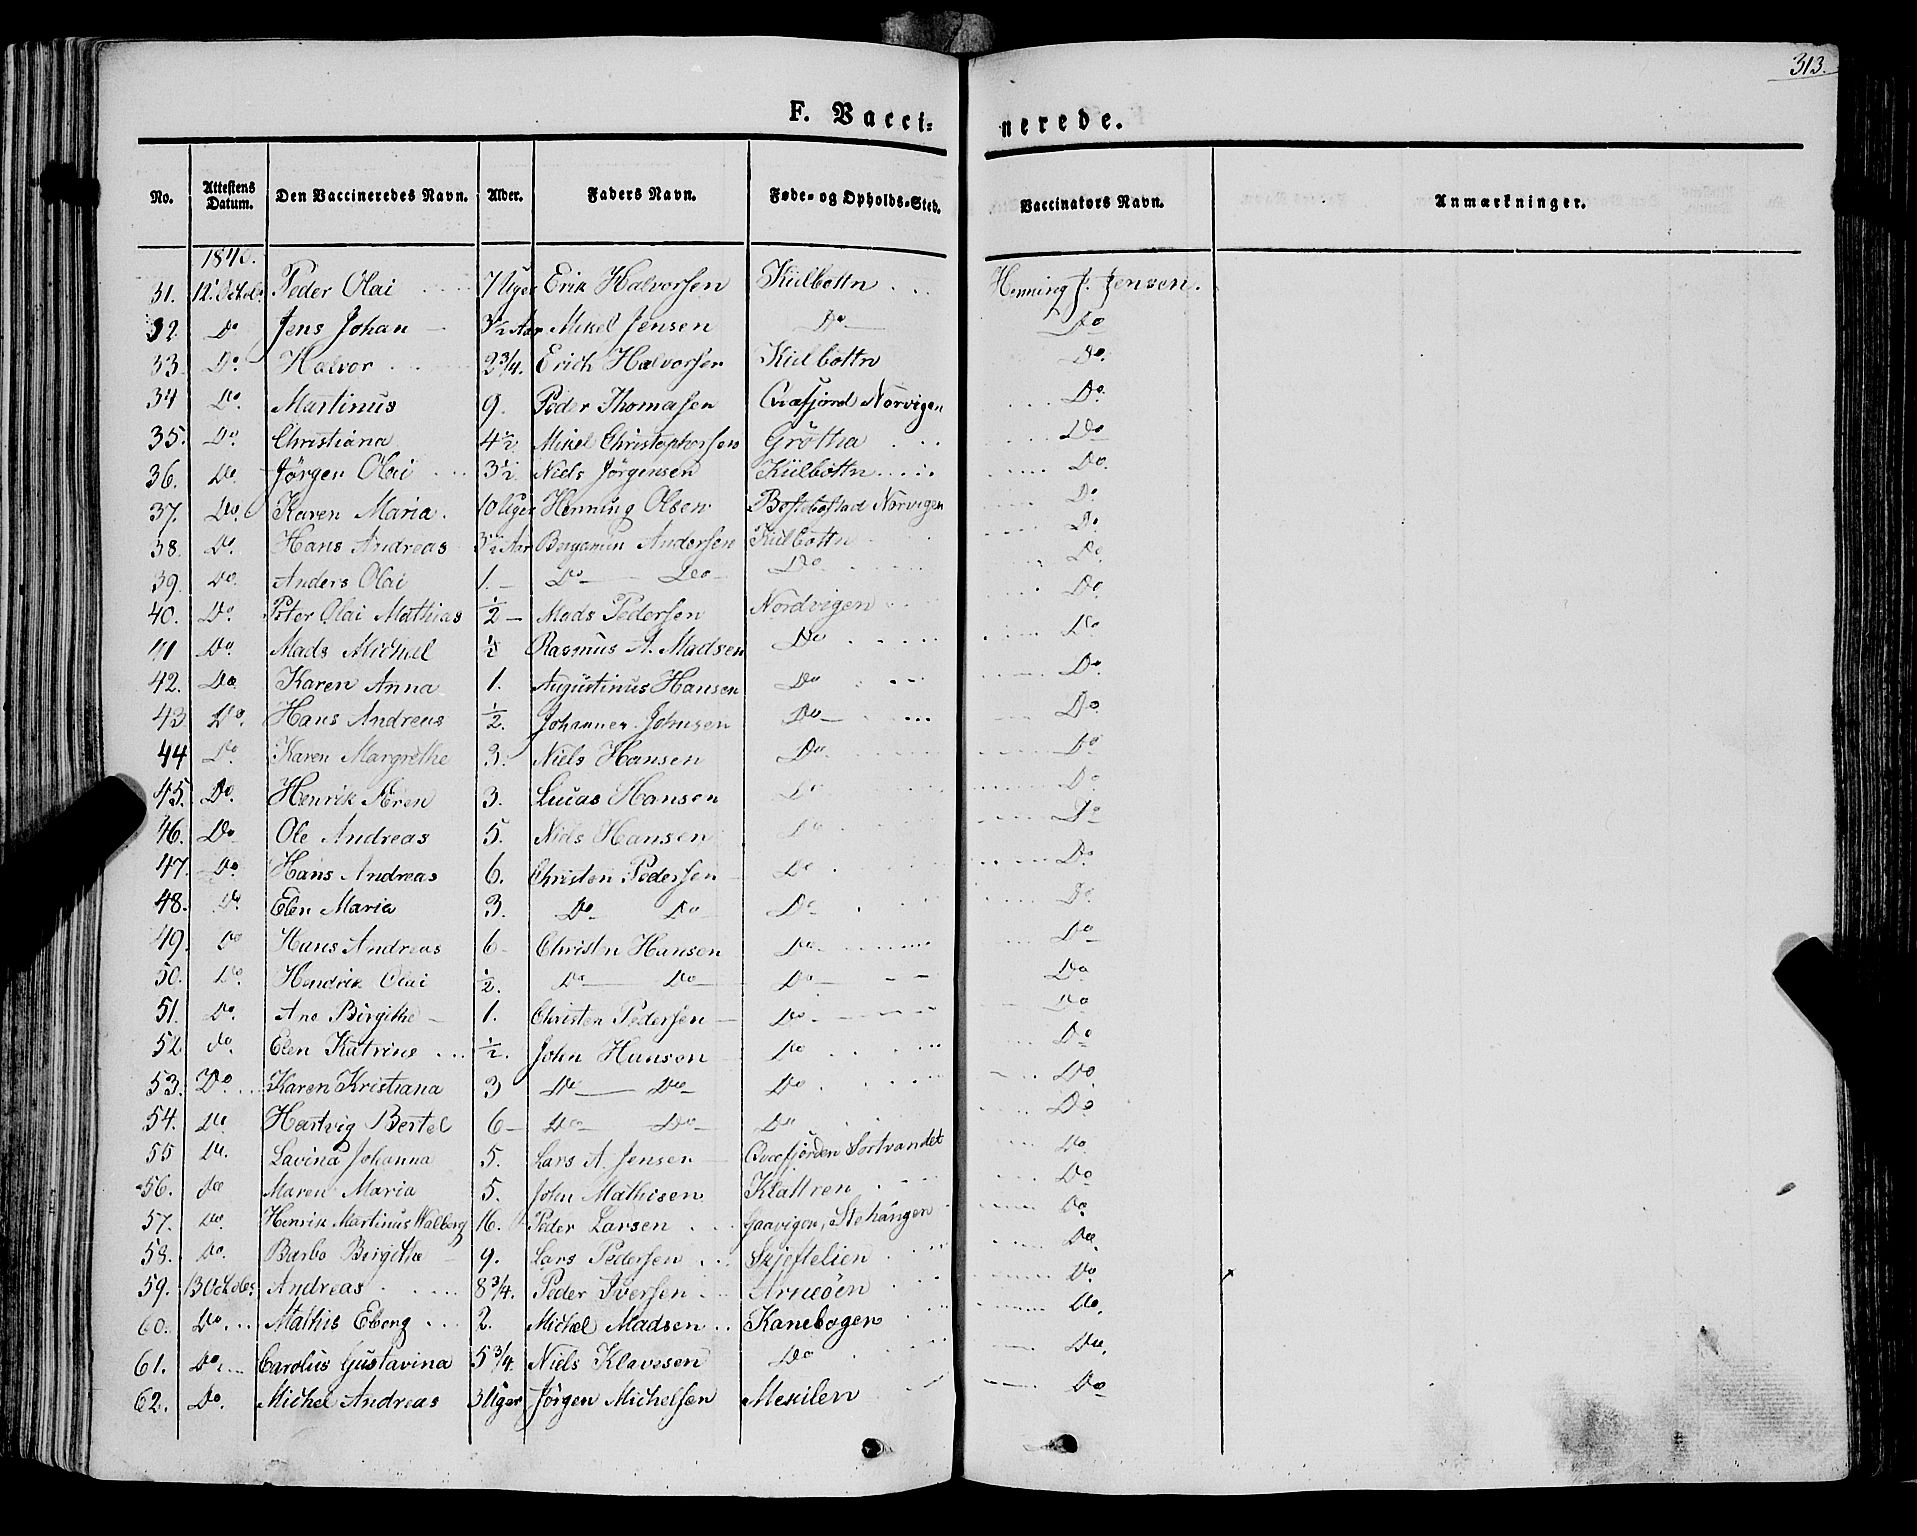 313.
F. Vacci-nerede.
No. Attestens Datum. Den Vaccineredes Navn. Alder. Faders Navn. Føde- og Opholds-Sted. Vaccinators Navn. Anmærkninger.
1840.
31. 12. Octob. Peder Olai 7 Uger Erik Halvorsen Kulbottn Henning J. Jensen.
32. Do Jens Johan 3½ Aar Mikel Jensen Do Do
33. Do. Halvor 2¾. Erich Halvorsen Kulbottn Do.
34 Do. Martinus 9. Peder Thomasen Qvæfjord Norvigen Do.
35. Do Christiana 4½ Mikel Christophersen Grøttra Do
36. Do. Jörgen Olai 3½ Niels Jörgensen Kulbottn Do.
37. Do. Karen Maria. 10 Uger Henning Olsen Bostebostad Norvigen Do
38. Do. Hans Andreas 3½ Aar Bergamin Andersen Kulbottn Do.
39. Do. Anders Olai 1. Do Do Do Do
40. Do. Peter Olai Mathias ½ Mads Pedersen Nordvigen Do
41 Do. Mads Michel ½ Rasmus A. Madsen Do Do
42. Do. Karen Anna 1. Augustinus Hansen Do Do
43 Do. Hans Andreas ½. Johannes Johnsen Do Do
44 Do. Karen Margrethe 3. Niels Hansen Do. Do
45. Do. Henrik Sören 3. Lucas Hansen Do Do
46. Do Ole Andreas 5. Niels Hansen Do Do
47. Do. Hans Andreas 6. Christen Pedersen Do Do
48. Do Elen Maria 3. Do Do Do Do
49. Do Hans Andreas 6 Christn Hansen Do Do
50. Do Hendrik Olai ½. Do Do Do Do
51. Do. Ane Birgithe 1. Christen Pedersen Do Do
52 do. Elen Katrine ½. John Hansen Do Do
53. Do Karen Kristiana 3 Do Do Do Do
54. Do Hartvig Bertel 6 Do Do Do Do
55 Do. Lavina Johanna 5. Lars A. Jensen Qvæfjorden Sortvandet Do
56. do Maren Maria 5. John Mathisen Klattren Do
57. Do. Henrik Martinus Walberg 16. Peder Larsen Gaavigen, Stehangen Do
58. Do. Barbo Birgithe 9. Lars Pedersen Skjeftelien Do.
59. 13 Octobr. Andreas 8¾. Peder Iversen Arneöen Do
60. Do Mathis Eberg 2. Michel Madsen Kanebogen Do.
61. Do. Carolus Gustavina 5¾. Niels Klavesen Do Do.
62. Do. Michel Andreas 3 Uger Jörgen Michelsen Meskilen Do